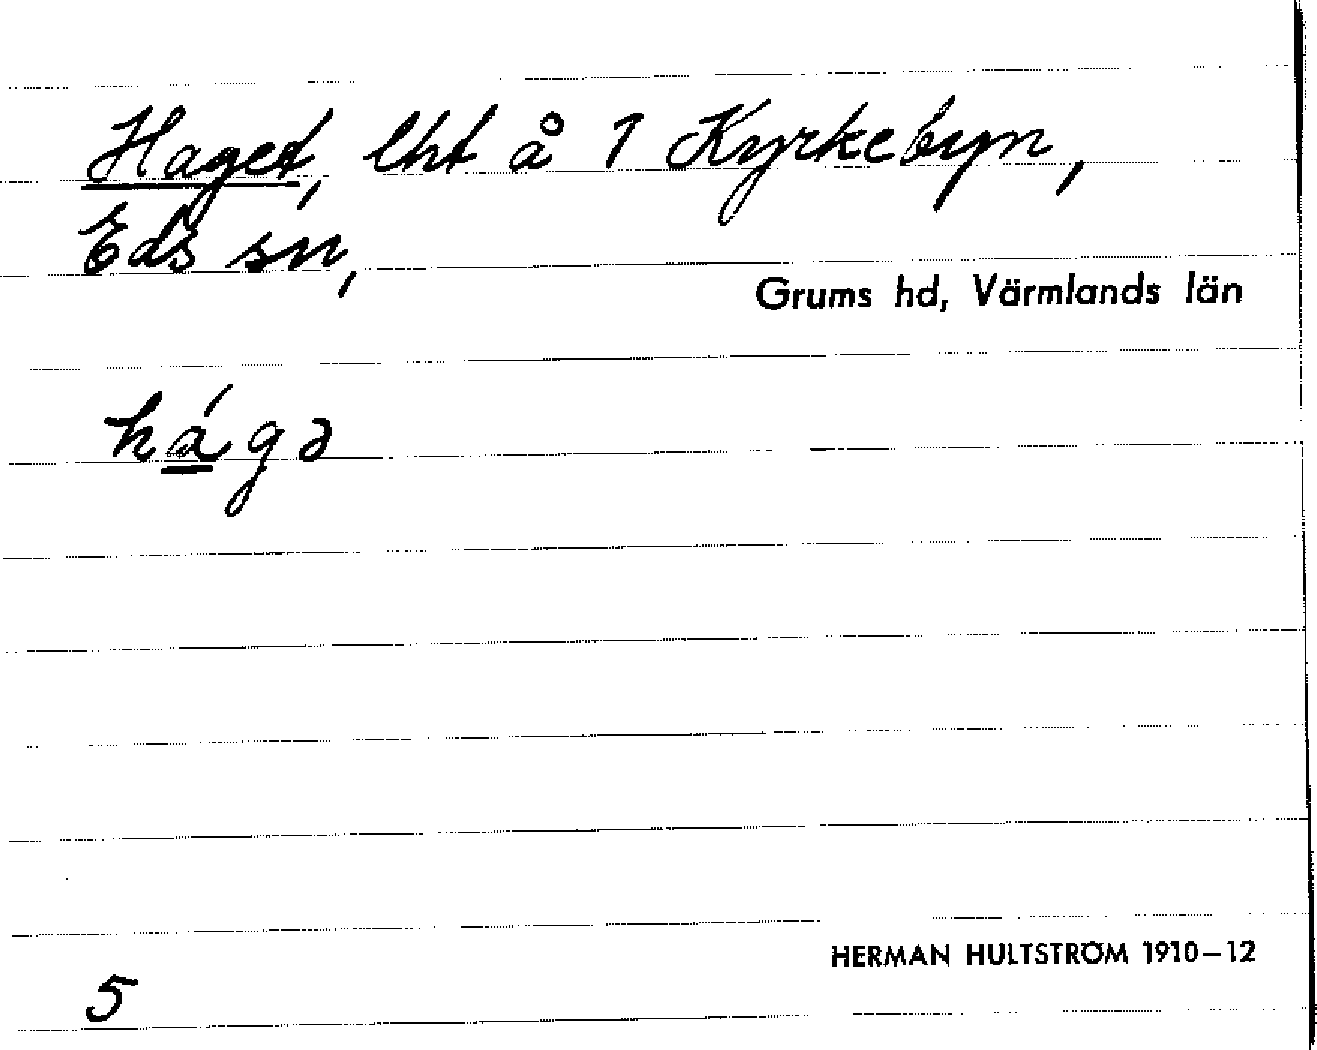 Haget, lht å 1 Kyrkebyn,
Eds sn,
Grums hd, Värmlands län
há̲gə
HERMAN HULTSTRÖM 1910–12
5